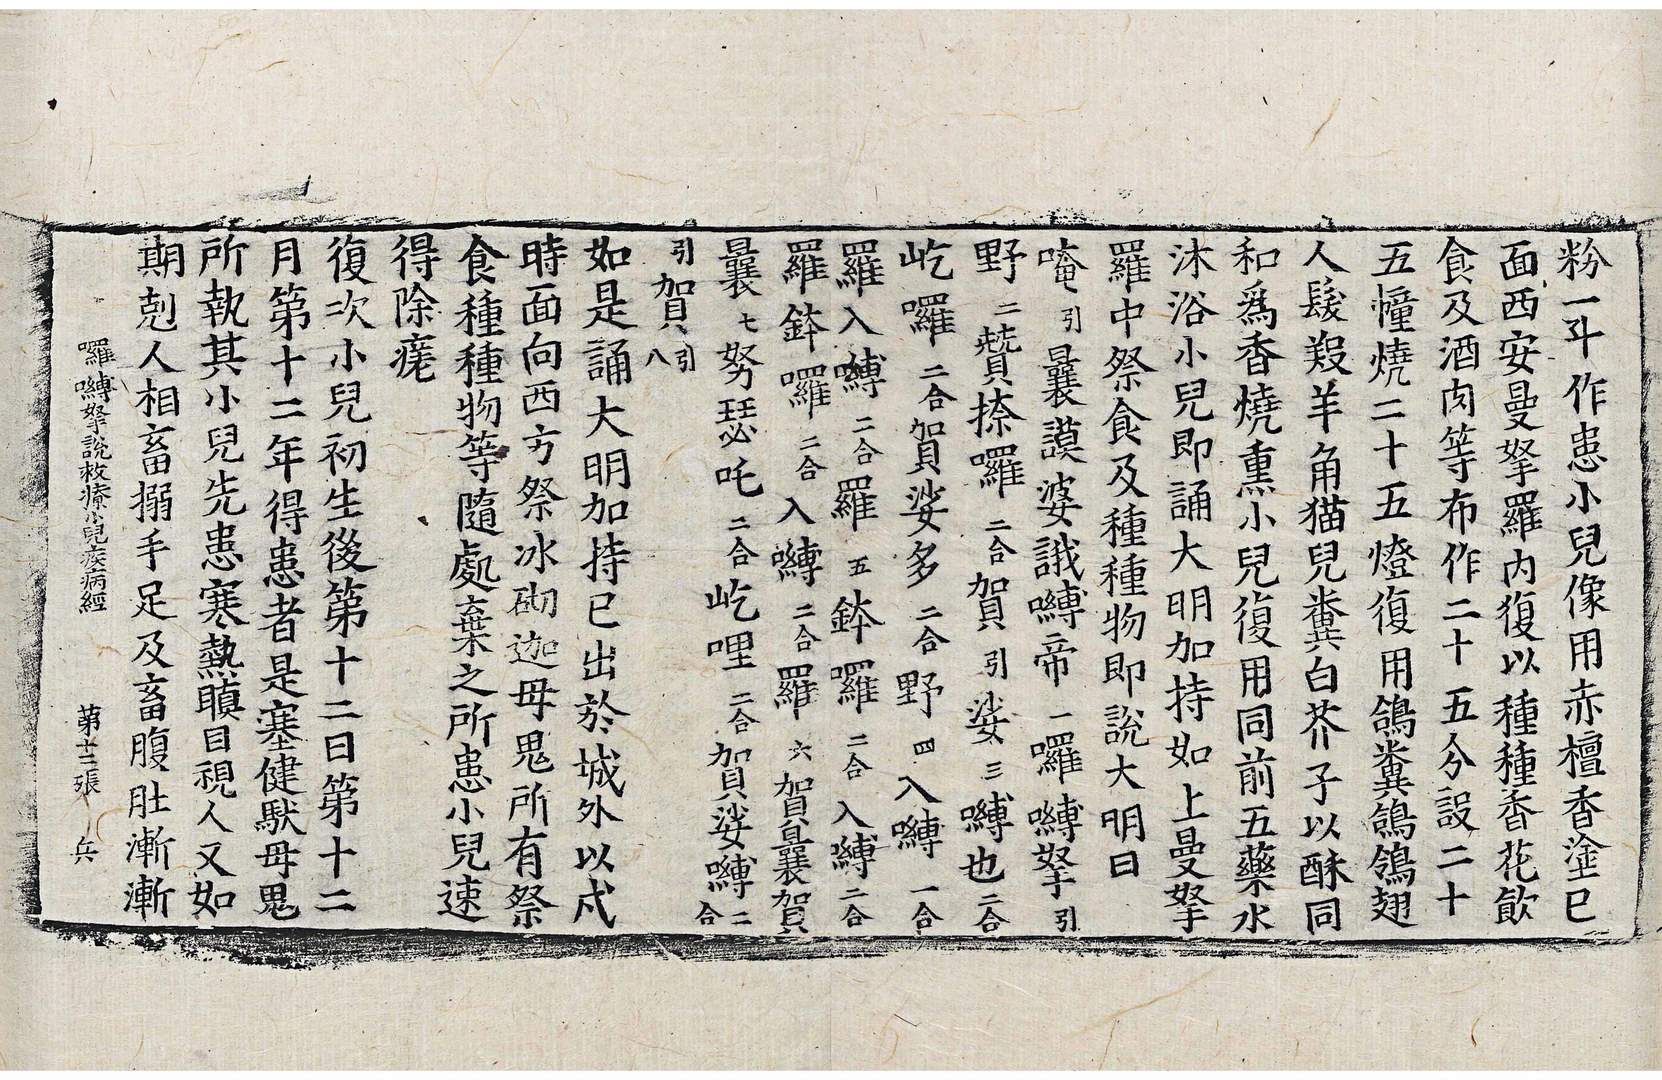 粉一斗作患小兒像用赤檀香塗已
面西安曼拏羅內復以種種香花飲
食及酒肉等布作二十五分設二十
五幢燒二十五燈復用鴿糞鵂鶹翅
人髮羖羊角猫兒糞白芥子以酥同
和爲香燒熏小兒復用同前五藥水
沐浴小兒即誦大明加持如上曼拏
羅中祭食及種種物即說大明曰
唵引曩謨婆誐嚩帝一囉嚩拏引
野二贊捺囉二合賀引娑三嚩也二合
屹囉二合賀娑多二合野四入嚩一合
羅入嚩二合羅五鉢囉二合入嚩二合
羅鉢囉二合入嚩二合羅六賀曩賀
曩七努瑟吒二合屹哩二合賀娑嚩二合
引賀引八
如是誦大明加持已出於城外以戍
時面向西方祭冰砌迦母鬼所有祭
食種種物等隨處棄之所患小兒速
得除瘥
復次小兒初生後第十二日第十二
月第十二年得患者是塞健馱母鬼
所執其小兒先患寒熱瞋目視人又如
期剋人相畜搦手足及畜腹肚漸漸
囉嚩拏說救療小兒疾病經 第十二張 兵